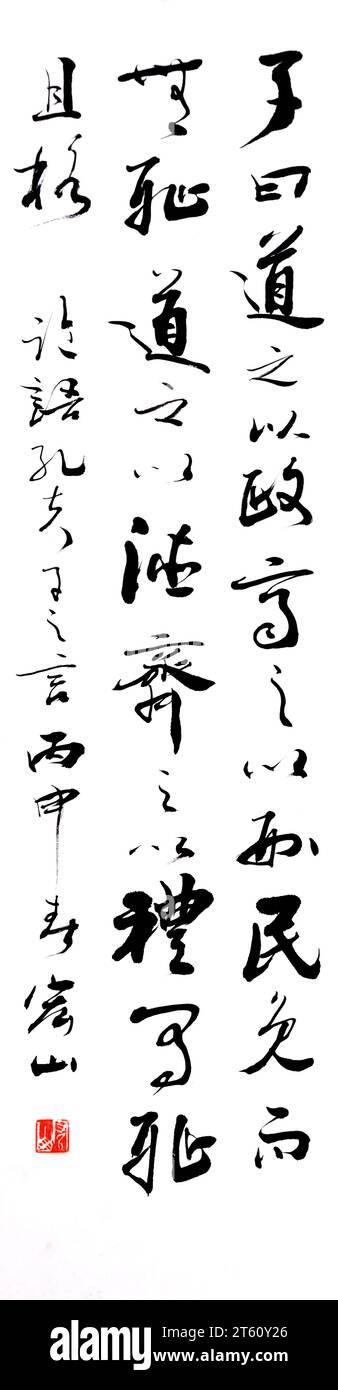 子曰道之以政齊之以刑民免而
無耻道之以德齊之以禮有耻
且格 論語孔夫子之言丙申春山
alamy
Image ID: 2T60Y26
www.alamy.com